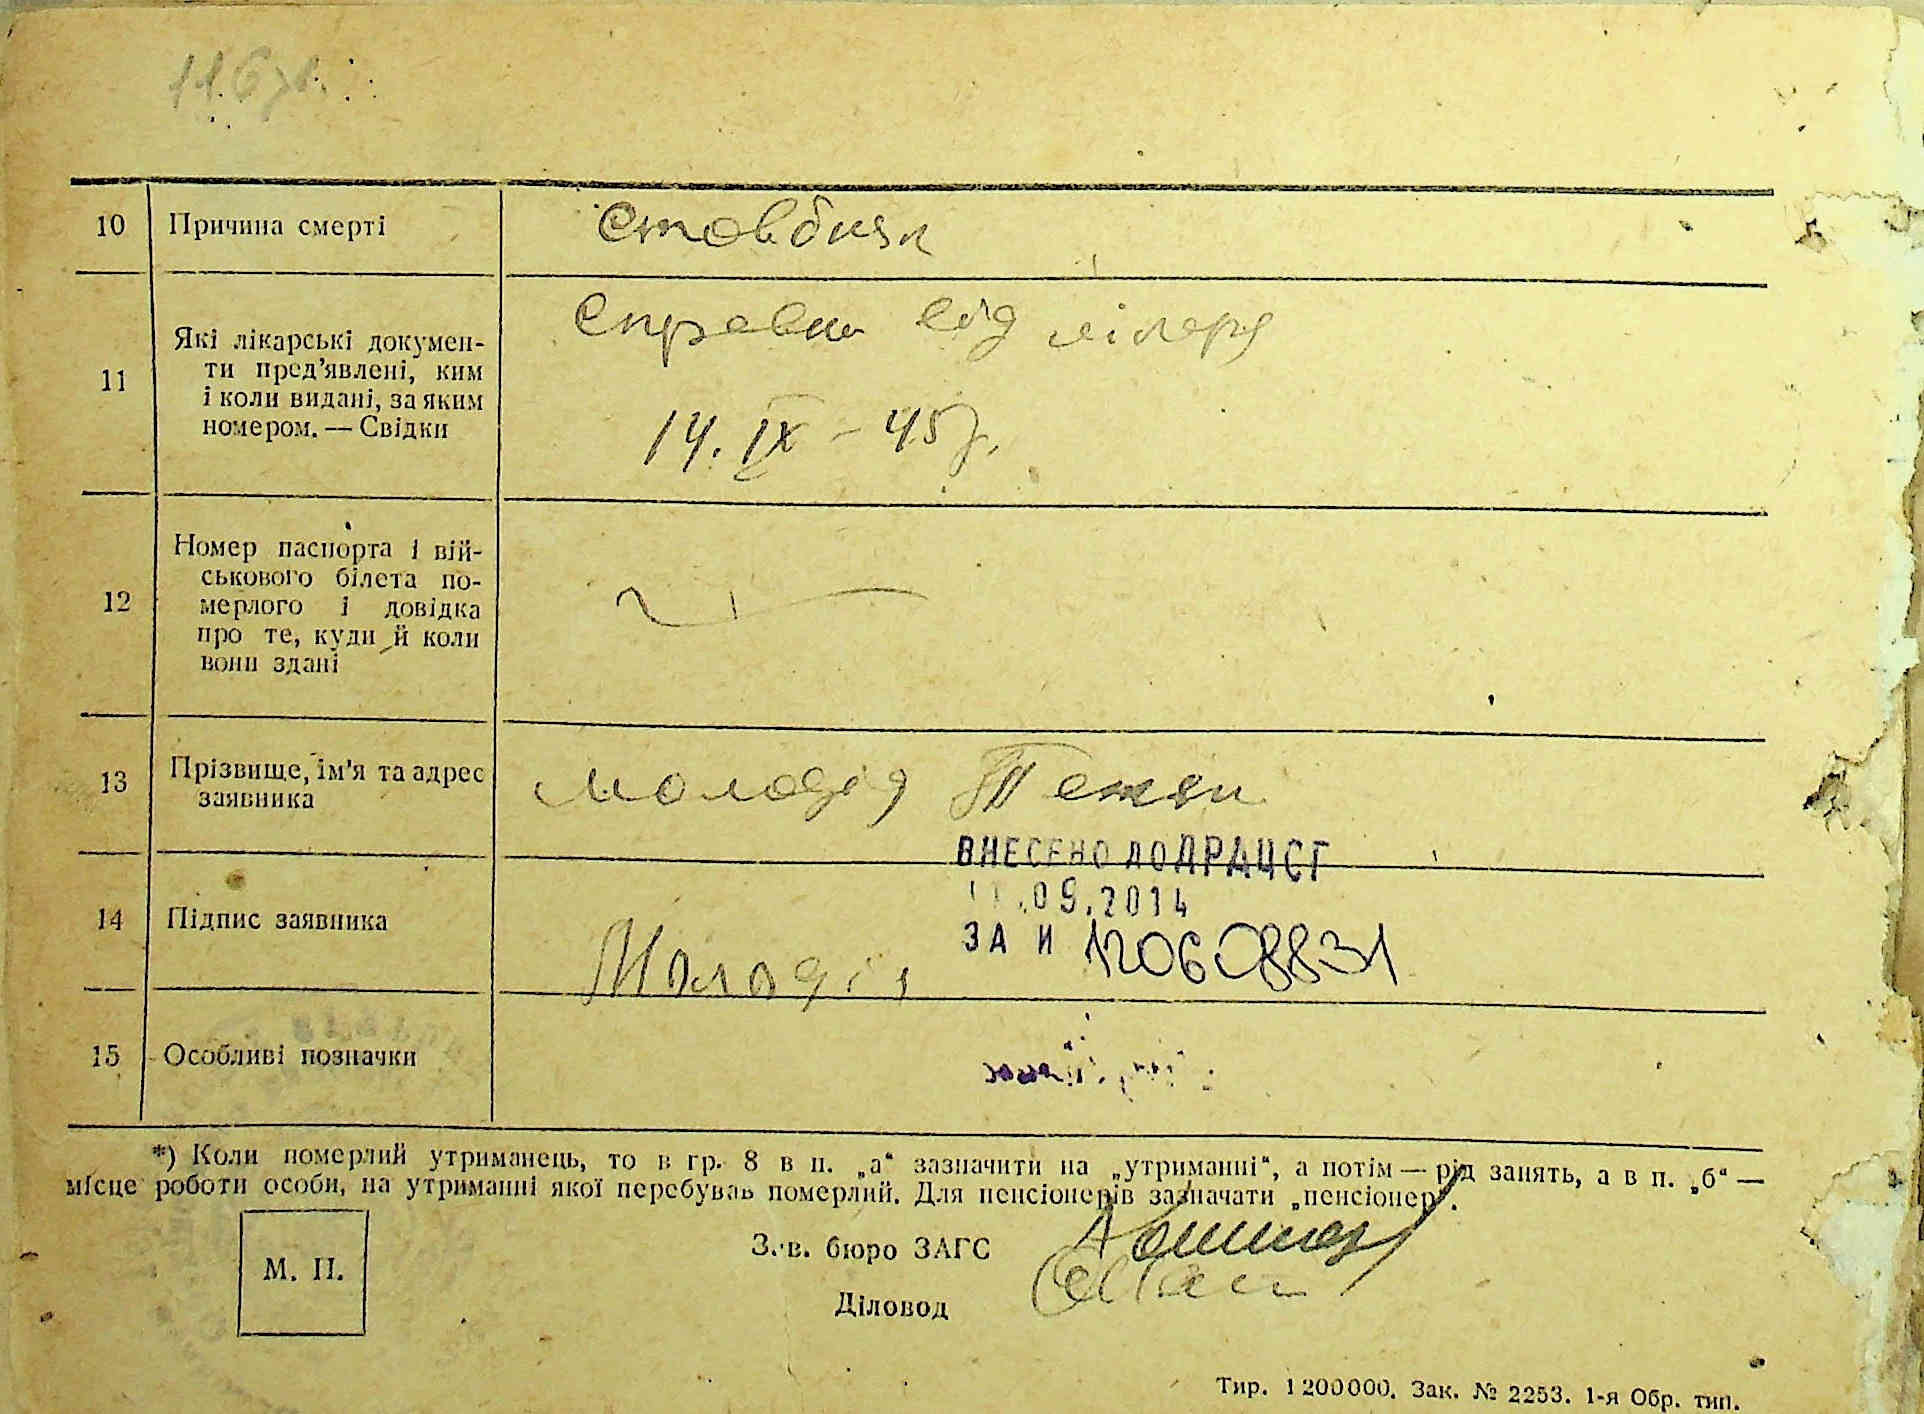 10 Причина смерті
стовбняк
11 Які лікарські докумен-
ти пред’явлені, ким
і коли видані, за яким
номером. — Свідки
справка від лікаря
14. IX – 45 р.
12 Номер паспорта і вій-
ськового білета по-
мерлого і довідка
про те, куди й коли
вони здані
13 Прізвище, ім’я та адрес
заявника
Молодід
ВНЕСЕНО ДО ДРАЦСГ
.09.2014
ЗА И 120608831
14 Підпис заявника
15 Особливі позначки
*) Коли померлий утриманець, то в гр. 8 в п. „а“ зазначити на „утриманні“, а потім — рід занять, а в п. „б“ —
місце роботи особи, на утриманні якої перебував померлий. Для пенсіонерів зазначати „пенсіонер“.
Зав. бюро ЗАГС
М. П.
Діловод
Тир. 1200000. Зак. № 2253. 1-я Обр. тип.